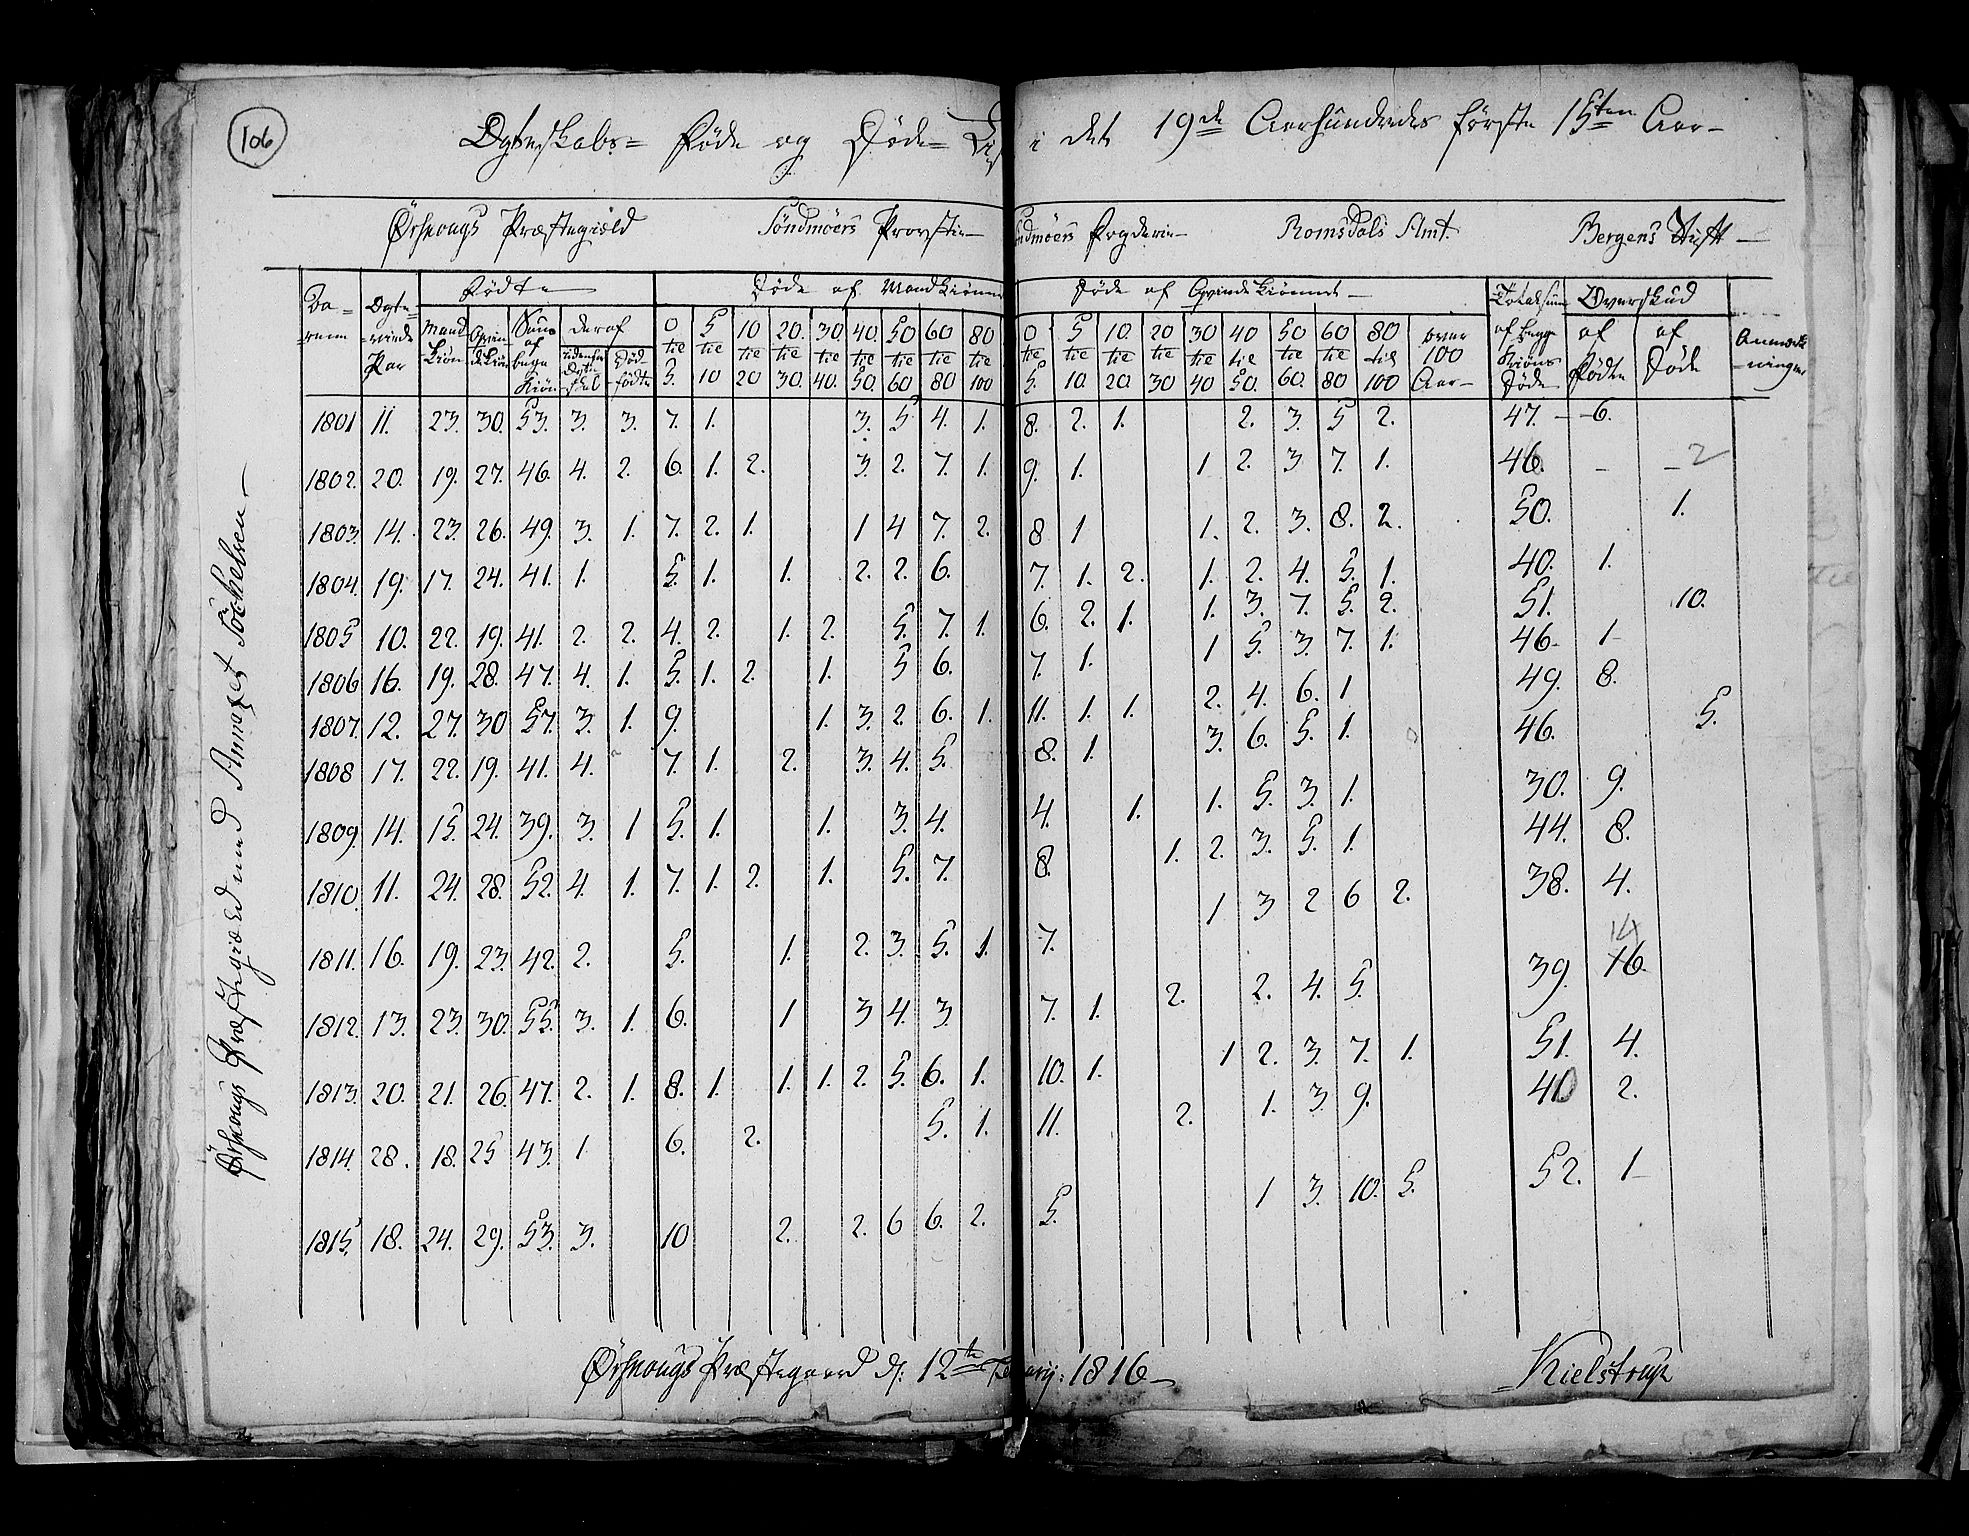 106
Ægteskabs= Føde og Døde= Lis i det 19de Aarhundredes første 15ten Aar-
Ørskougs Præstegield Söndmöers Provstie- ndmöers Fogderie- Romsdals Amt. Bergens Stift-
Födte Döde af Mandkiönnet Döde af Qvindekiönnet- Totalsum Overskud
Aa- Ægte= Mand Qvin Sum deraf 0 5 10 20. 30. 40. 50 60 80 0 5 10. 20 30 40 50 60 80 over af begge af af Anmærk
-rene -viede kiön dekiön af udenfor Død tie tie tie tie tie tie tie tie tie tie tie tie tie tie til tie tie til 100 Kiöns Födte Döde -ninger
Par begge Kiön Ægteskab födte 5. 10 20 30. 40. 50. 60 80 100 5. 10. 20. 30 40 50. 60. 80 100 Aar- Döde
1801 11. 23. 30. 53. 3. 3. 7. 1. 3. 5 4. 1. 8. 2. 1. 2. 3. 5 2. 47. - 6.
1802. 20. 19. 27. 46. 4. 2. 6. 1. 2. 3. 2. 7. 1. 9. 1. 1 2. 3 7. 1. 46. - - 2
1803. 14. 23. 26. 49. 3. 1. 7. 2. 1. 1 4 7. 2. 8 1 1. 2. 3. 8. 2. 50. 1.
1804. 19. 17. 24. 41. 1. 5. 1. 1. 2. 2. 6. 7. 1. 2. 1. 2. 4. 5. 1. 40. 1.
1805 10. 22. 19. 41. 2. 2. 4. 2. 1. 2. 5. 7. 1. 6. 2. 1. 1. 3. 7. 5. 2. 51. 10.
1806 16. 19. 28. 47. 4. 1. 5. 1. 2. 1. 5 6. 7. 1. 1 5. 3. 7. 1. 46- 1-
1807. 12. 27. 30 57. 3. 1. 9. 1. 3. 2 6. 1. 11. 1. 1. 2. 4. 6. 1 49. 8.
1808 17. 22. 19. 41. 4. 7. 1. 2. 3. 4. 5. 8. 1. 3. 6. 5. 1. 46. 5.
1809. 14. 15. 24. 39. 3. 1 5. 1. 1. 3. 4. 4. 1. 1. 5. 3. 1. 30. 9.
1810. 11. 24. 28. 52. 4. 1. 7. 1. 2. 1. 5. 7. 8. 1. 2. 3. 5. 1. 44. 8.
1811. 16. 19. 23. 42. 2. 5. 1. 2. 3. 5. 1. 7. 1 3 2 6 2. 38. 4.
14
1812. 13. 23. 30. 53. 3. 1. 6. 1 3 4. 3. 7. 1. 2. 2. 4. 5. 39. 16.
1813. 20. 21. 26. 47. 2. 1. 8. 1. 1. 1. 2. 5. 6. 1. 10. 1. 1 2. 3. 7. 1. 51. 4.
1814. 28. 18. 25 43. 1 6. 2. 5. 1. 11. 2. 1. 3. 9. 40 2.
1815. 18. 24. 29. 53. 3. 10 2. 2. 6 6. 2. 5. 1 3. 10. 5. 52. 1-
Ørskougs Præstegaard d: 12te arij: 1816- Kielstrup
Ørskougs Præstegield med Annexet Söckelven-